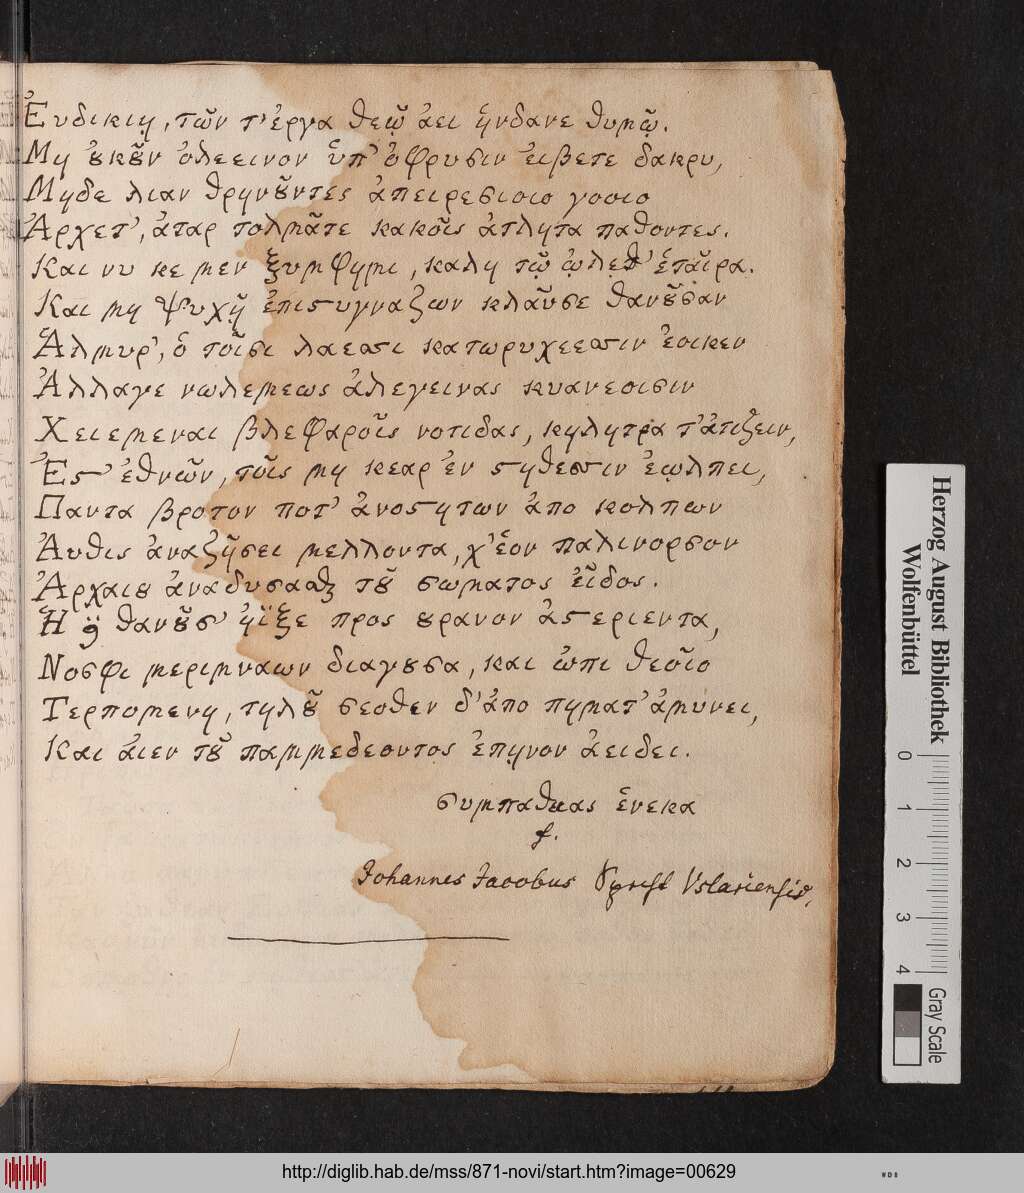 Ἐυδικιη, τῶν τ' ἐργα θεῷ ἀει ἥνδανε θυμῷ.
Μη ȣκȣ͂ν ὀλεεινον ὑπ' ὀφρυσιν ἐιβετε δακρυ,
Μηδε λιαν θρηνȣ͂ντες ἀπειρεσιοιο γοοιο
Ἀρχετ', ἀταρ τολμᾶτε κακοῖς ἀτλητα παθοντες.
Και νυ κε μεν ξυμφημι, καλη τῷ ᾠλεθ' ἑταῖρα.
Και μη ψυχῇ ἐπιστυγναζων κλαῦσε θανȣ͂σαν
Ἁλμυρ', ὁ τοῖσι λαεσσι κατωρυχεεσσιν ἐοικεν
Ἀλλαγε νωλεμεως ἀλεγεινας κυανεοισιν
Χειεμεναι βλεφαροῖς νοτιδας, κηλητρα τ' ἀτιζειν,
Ἐς τ' ἐθνῶν, τοῖς μη κεαρ ἐν στηθεσσιν ἐῳλπει,
Παντα βροτον ποτ' ἀνοστητων ἀπο κολπων
Ἀυθις ἀναζῆσει μελλοντα, χ' ἑον παλινορσον
Ἀρχαιȣ ἀναδυσααξ τȣ͂ σωματος εἶδος.
Ἡ θανȣ͂σ' ἠϊξε προς ȣρανον ἀστεριεντα,
Νοσφι μεριμναων διαγȣσα, και ὠπι θεοῖο
Τερπομενη, τηλȣ͂ σεοθεν δ' ἀπο πηματ' ἀμύνει,
Και ἀιεν τȣ͂ παμμεδεοντος ἐπῃνον ἀειδει.
συμπαθειας ἕνεκα
f.
Johannes Jacobus Uslariensis.
Herzog August Bibliothek
Wolfenbüttel
0
1
2
3
4
Gray Scale
http://diglib.hab.de/mss/871-novi/start.htm?image=00629